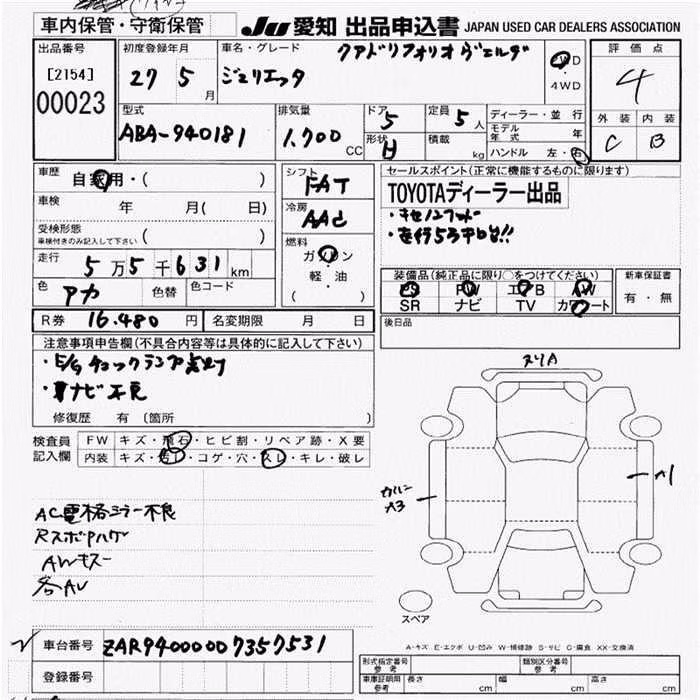 車内保管・守衛保管
JU 愛知 出品申込書 JAPAN USED CAR DEALERS ASSOCIATION
出品番号
[2154]
00023
初度登録年月
27 5 月
車名・グレード
クアドリフォリオ ヴェルデ
ジュリエッタ
2WD
4WD
評価点
4
外装 内装
C B
型式
ABA-940181
排気量
1,700 CC
ドア
5
形状
H
定員
5 人
積載
kg
ディーラー・並行
モデル年式 年
ハンドル 左・右
車歴
自家用・( )
車検
年 月( 日)
受検形態
車検付きのみ記入して下さい ( )
走行
5万5千631km
色
アカ
色替
色コード
シフト
FAT
冷房
AAC
燃料
ガソリン
軽・油
( )
セールスポイント(正常に機能するものに限ります)
TOYOTAディーラー出品
・キセノンフット
・走行5.5万キロ!!
装備品(純正品に限り○をつけてください)
PS PW エアB AW
SR ナビ TV カワシート
新車保証書
有・無
R券 16.480 円 名変期限 月 日
後日品
注意事項申告欄(不具合内容等は具体的に記入して下さい)
・E/gチェックランプ点灯
・ナビ不良
修復歴 有 (箇所 )
検査員
記入欄
FW キズ・飛石・ヒビ割・リペア跡・X要
内装 キズ・汚レ・コゲ・穴・スレ・キレ・破レ
AC電格ミラー不良
Rスポイラハゲ
AWキズ
各AU
ヌリA
A3
A1
スペア
A-キズ E-エクボ U-凹み W-補修跡 S-サビ C-腐食 XX-交換済
車台番号 ZAR94000007357531
登録番号
形式指定番号
参考
類別区分番号
参考
車庫証明用
参考
長さ cm 幅 cm 高さ cm